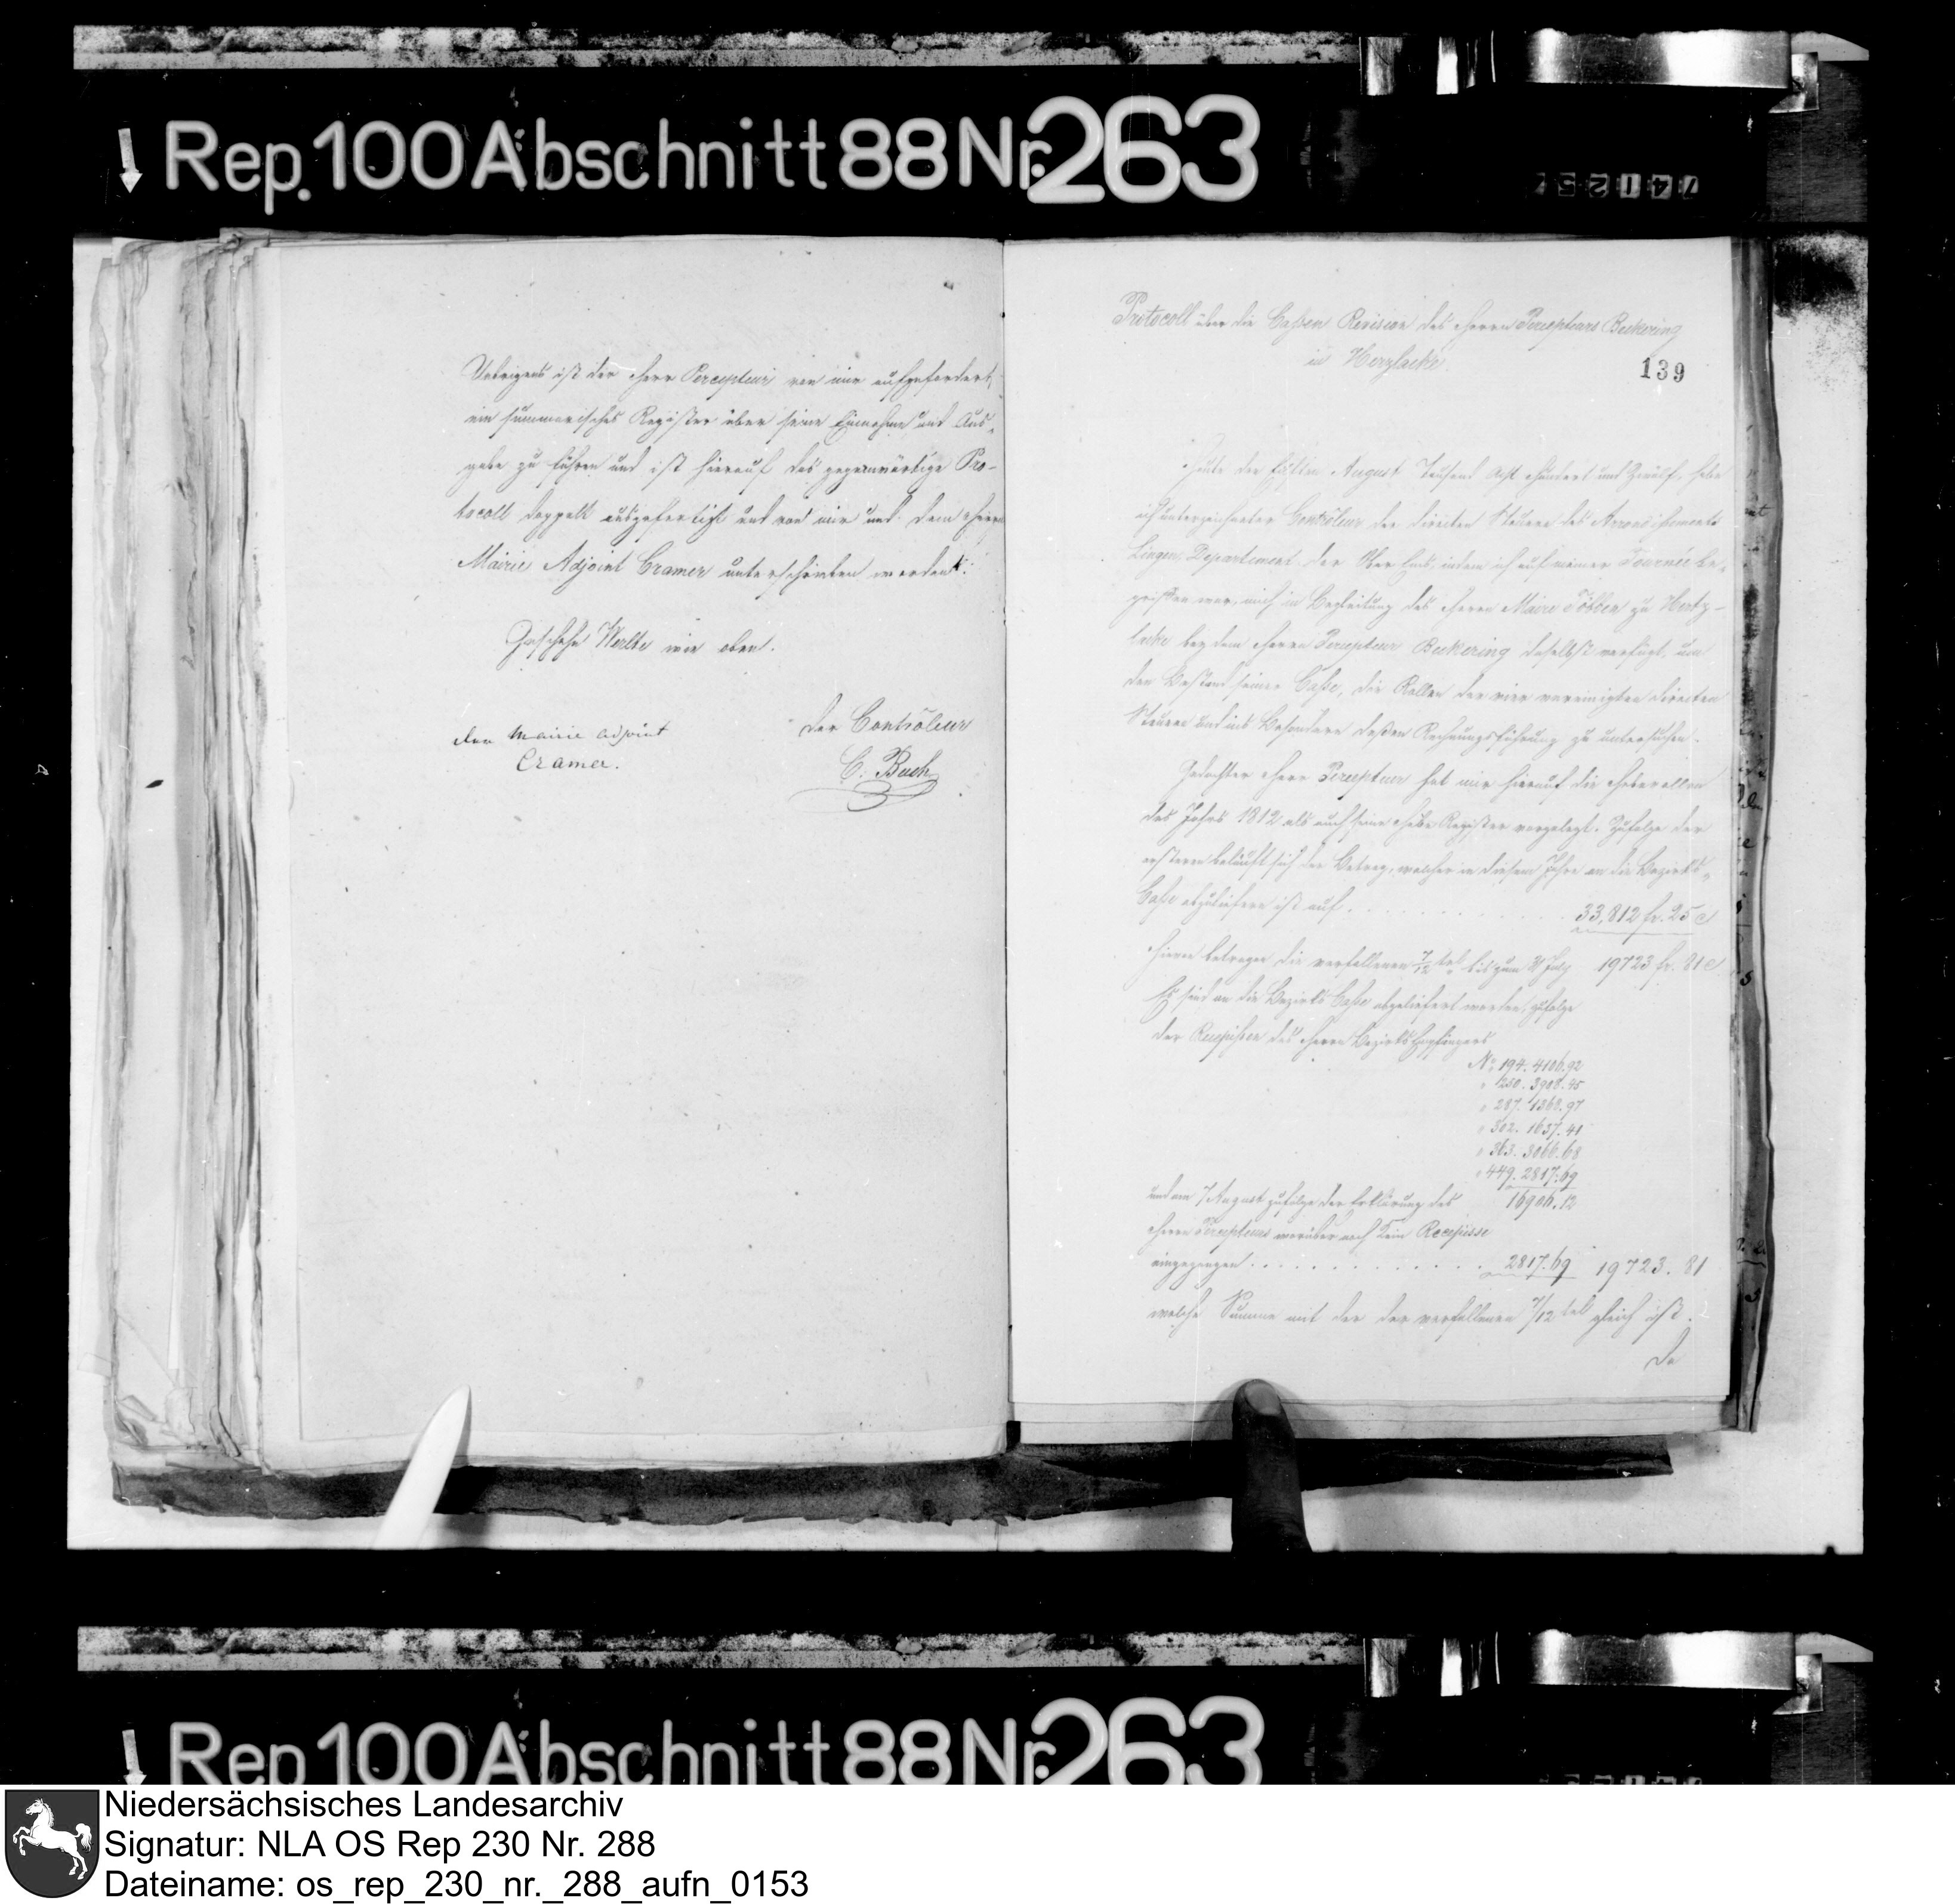 Rep. 100 Abschnitt 88 Nr. 263
741257
Uebrigens ist der Herr Percepteur von mir aufgefordert,
ein summarisches Register über seine Einnahme und Aus-
gabe zu führen und ist hierauf das gegenwärtige Pro-
tocoll doppelt ausgefertigt und von mir und dem Herrn
Mairie Adjoint Cramer unterschrieben worden.
Geschehen Werlte wie oben.
der Mairie adjoint
Cramer.
der Contrôleur
C. Buch
Protocoll über die Cassen Revision des Herrn Percepteurs Beckering
in Herzlacke.
139
Heute den Eilften August Tausend Acht Hundert und Zwölf, habe
ich unterzeichneter Contrôleur der directen Steuern des Arrondissements
Lingen, Departement der Ober Ems, indem ich auf meiner Tournée be-
griffen war, mich in Begleitung des Herrn Maire Többen zu Hertz-
lacke bey dem Herrn Percepteur Beckering daselbst verfügt, um
den Bestand seiner Casse, die Rollen der vier vereinigten directen
Steuern und ins Besondere dessen Rechnungsführung zu untersuchen.
Gedachter Herr Percepteur hat mir hierauf die Heberollen
des Jahrs 1812 als auch seine Hebe Register vorgelegt. Zufolge der
ersteren beläuft sich der Betrag, welcher in diesem Jahre an die Bezirks-
Casse abzuliefern ist auf . . . . . . . . . . . . . 33,812 fr. 25 c
Hievon betragen die verfallenen 7/12 tel bis zum 31 July 19723 fr. 81 c
Es sind an die Bezirks Casse abgeliefert worden, zufolge
der Recepissen des Herrn Bezirks Empfängers
No. 194. 4106.92
" 250. 3908.45
" 287. 1368.97
" 302. 1637.41
" 363. 3066.68
" 449. 2817.69
16906.12
und am 7 August zufolge der Erklärung des
Herrn Percepteurs worüber noch kein Recepisse
eingegangen . . . . . . . . . . . . . 2817.69 19723. 81
welche Summe mit der der verfallenen 7/12 tel gleich ist.
Da
Rep. 100 Abschnitt 88 Nr. 263
Niedersächsisches Landesarchiv
Signatur: NLA OS Rep 230 Nr. 288
Dateiname: os_rep_230_nr._288_aufn_0153